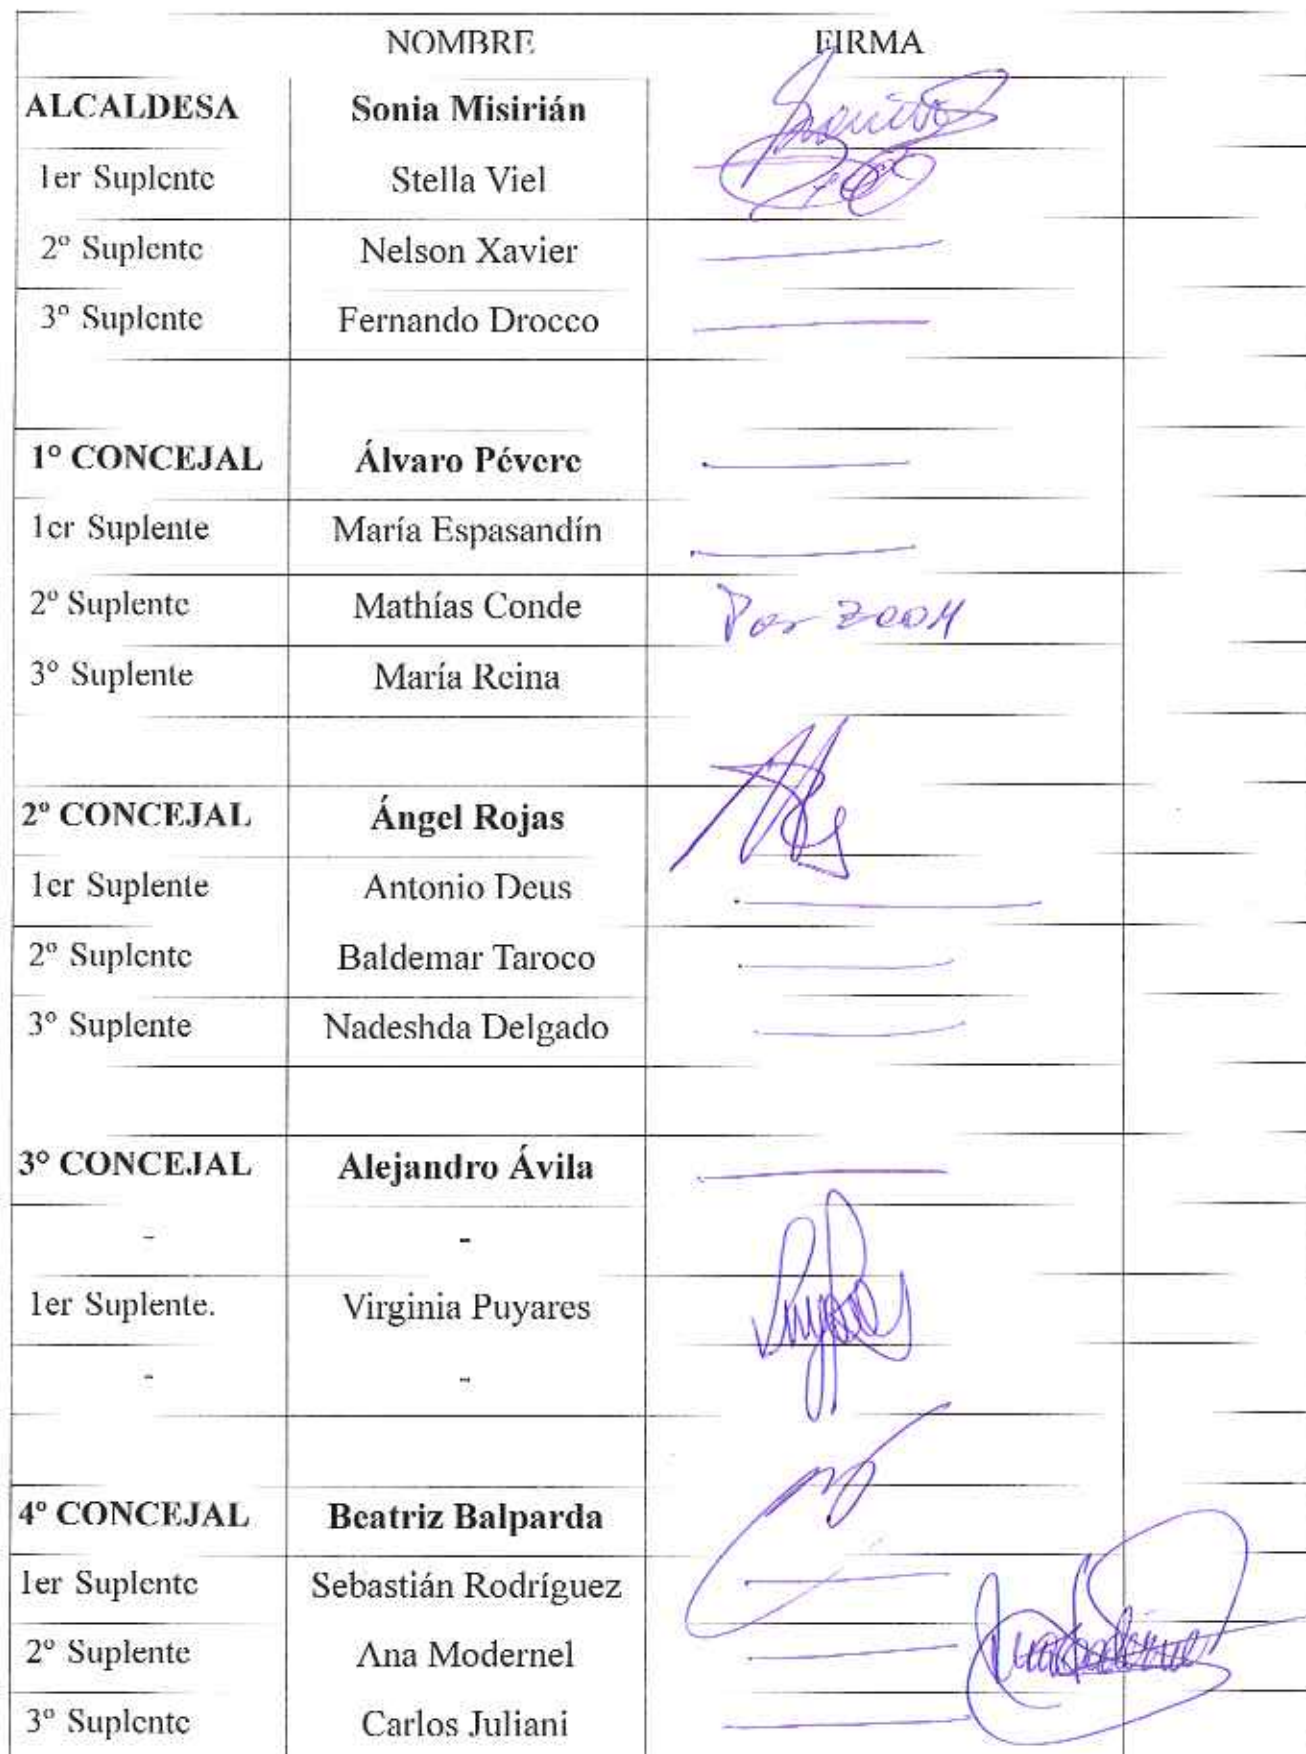 NOMBRE FIRMA
ALCALDESA Sonia Misirián
1er Suplente Stella Viel
2º Suplente Nelson Xavier
3º Suplente Fernando Drocco
1º CONCEJAL Álvaro Pévere
1er Suplente María Espasandín
2º Suplente Mathías Conde Por ZOOM
3º Suplente María Reina
2º CONCEJAL Ángel Rojas
1er Suplente Antonio Deus
2º Suplente Baldemar Taroco
3º Suplente Nadeshda Delgado
3º CONCEJAL Alejandro Ávila
- -
1er Suplente. Virginia Puyares
- -
4º CONCEJAL Beatriz Balparda
1er Suplente Sebastián Rodríguez
2º Suplente Ana Modernel
3º Suplente Carlos Juliani